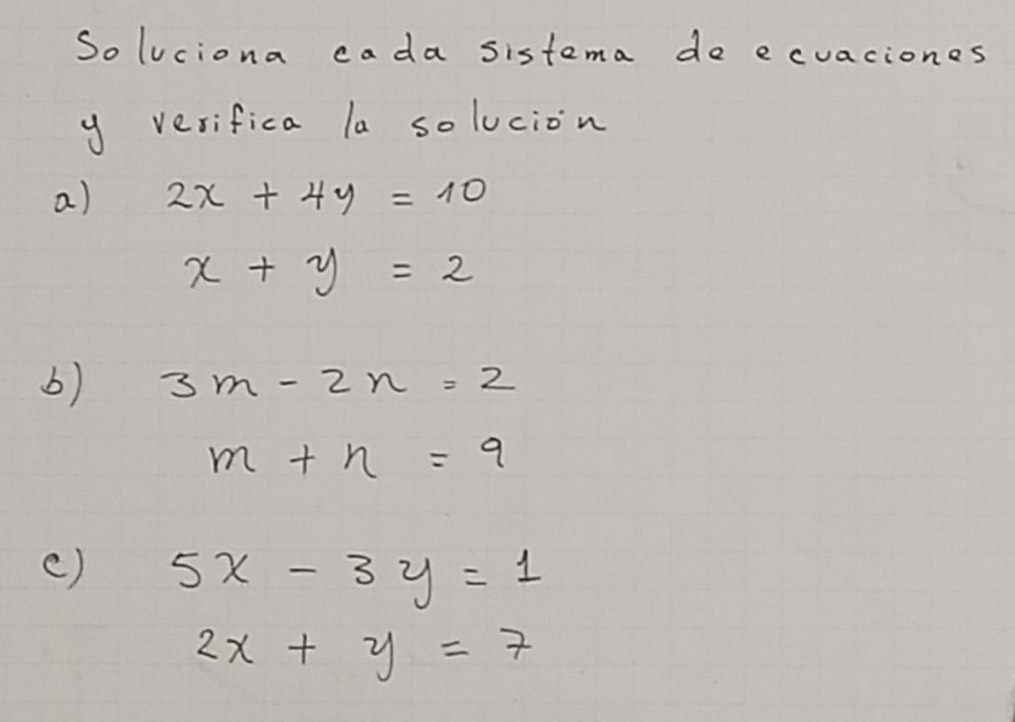 Soluciona cada sistema de ecuaciones
y verifica la solución
a) 2x + 4y = 10
x + y = 2
b) 3m - 2n = 2
m + n = 9
c) 5x - 3y = 1
2x + y = 7